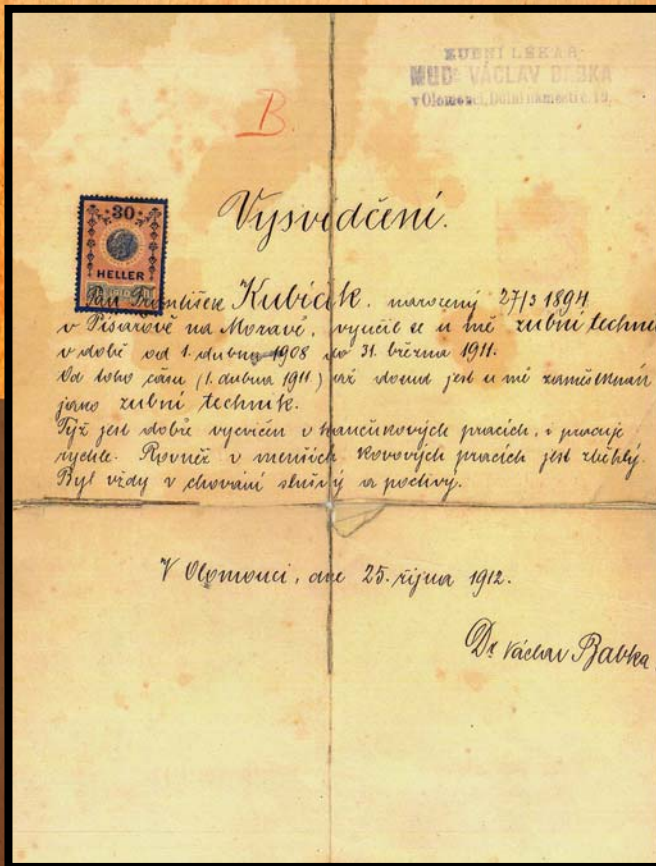 ZUBNÍ LÉKAŘ
MUDr VÁCLAV BABKA
v Olomouci, Dolní náměstí 19.
B.
30
HELLER
Vysvědčení.
Pan František Kubíček, narozený 27/3 1894
v Písařově na Moravě, vyučil se u mě zubní techni
v době od 1. dubna 1908 do 31. března 1911.
Od toho času (1. dubna 1911) až dosud jest u mě zaměstnán
jako zubní technik.
Týž jest dobře vycvičen v kaučukových pracích, i pracuje
rychle. Rovněž v menších kovových pracích jest zběhlý.
Byl vždy v chování slušný a poctivý.
V Olomouci, dne 25. října 1912.
Dr Václav Babka